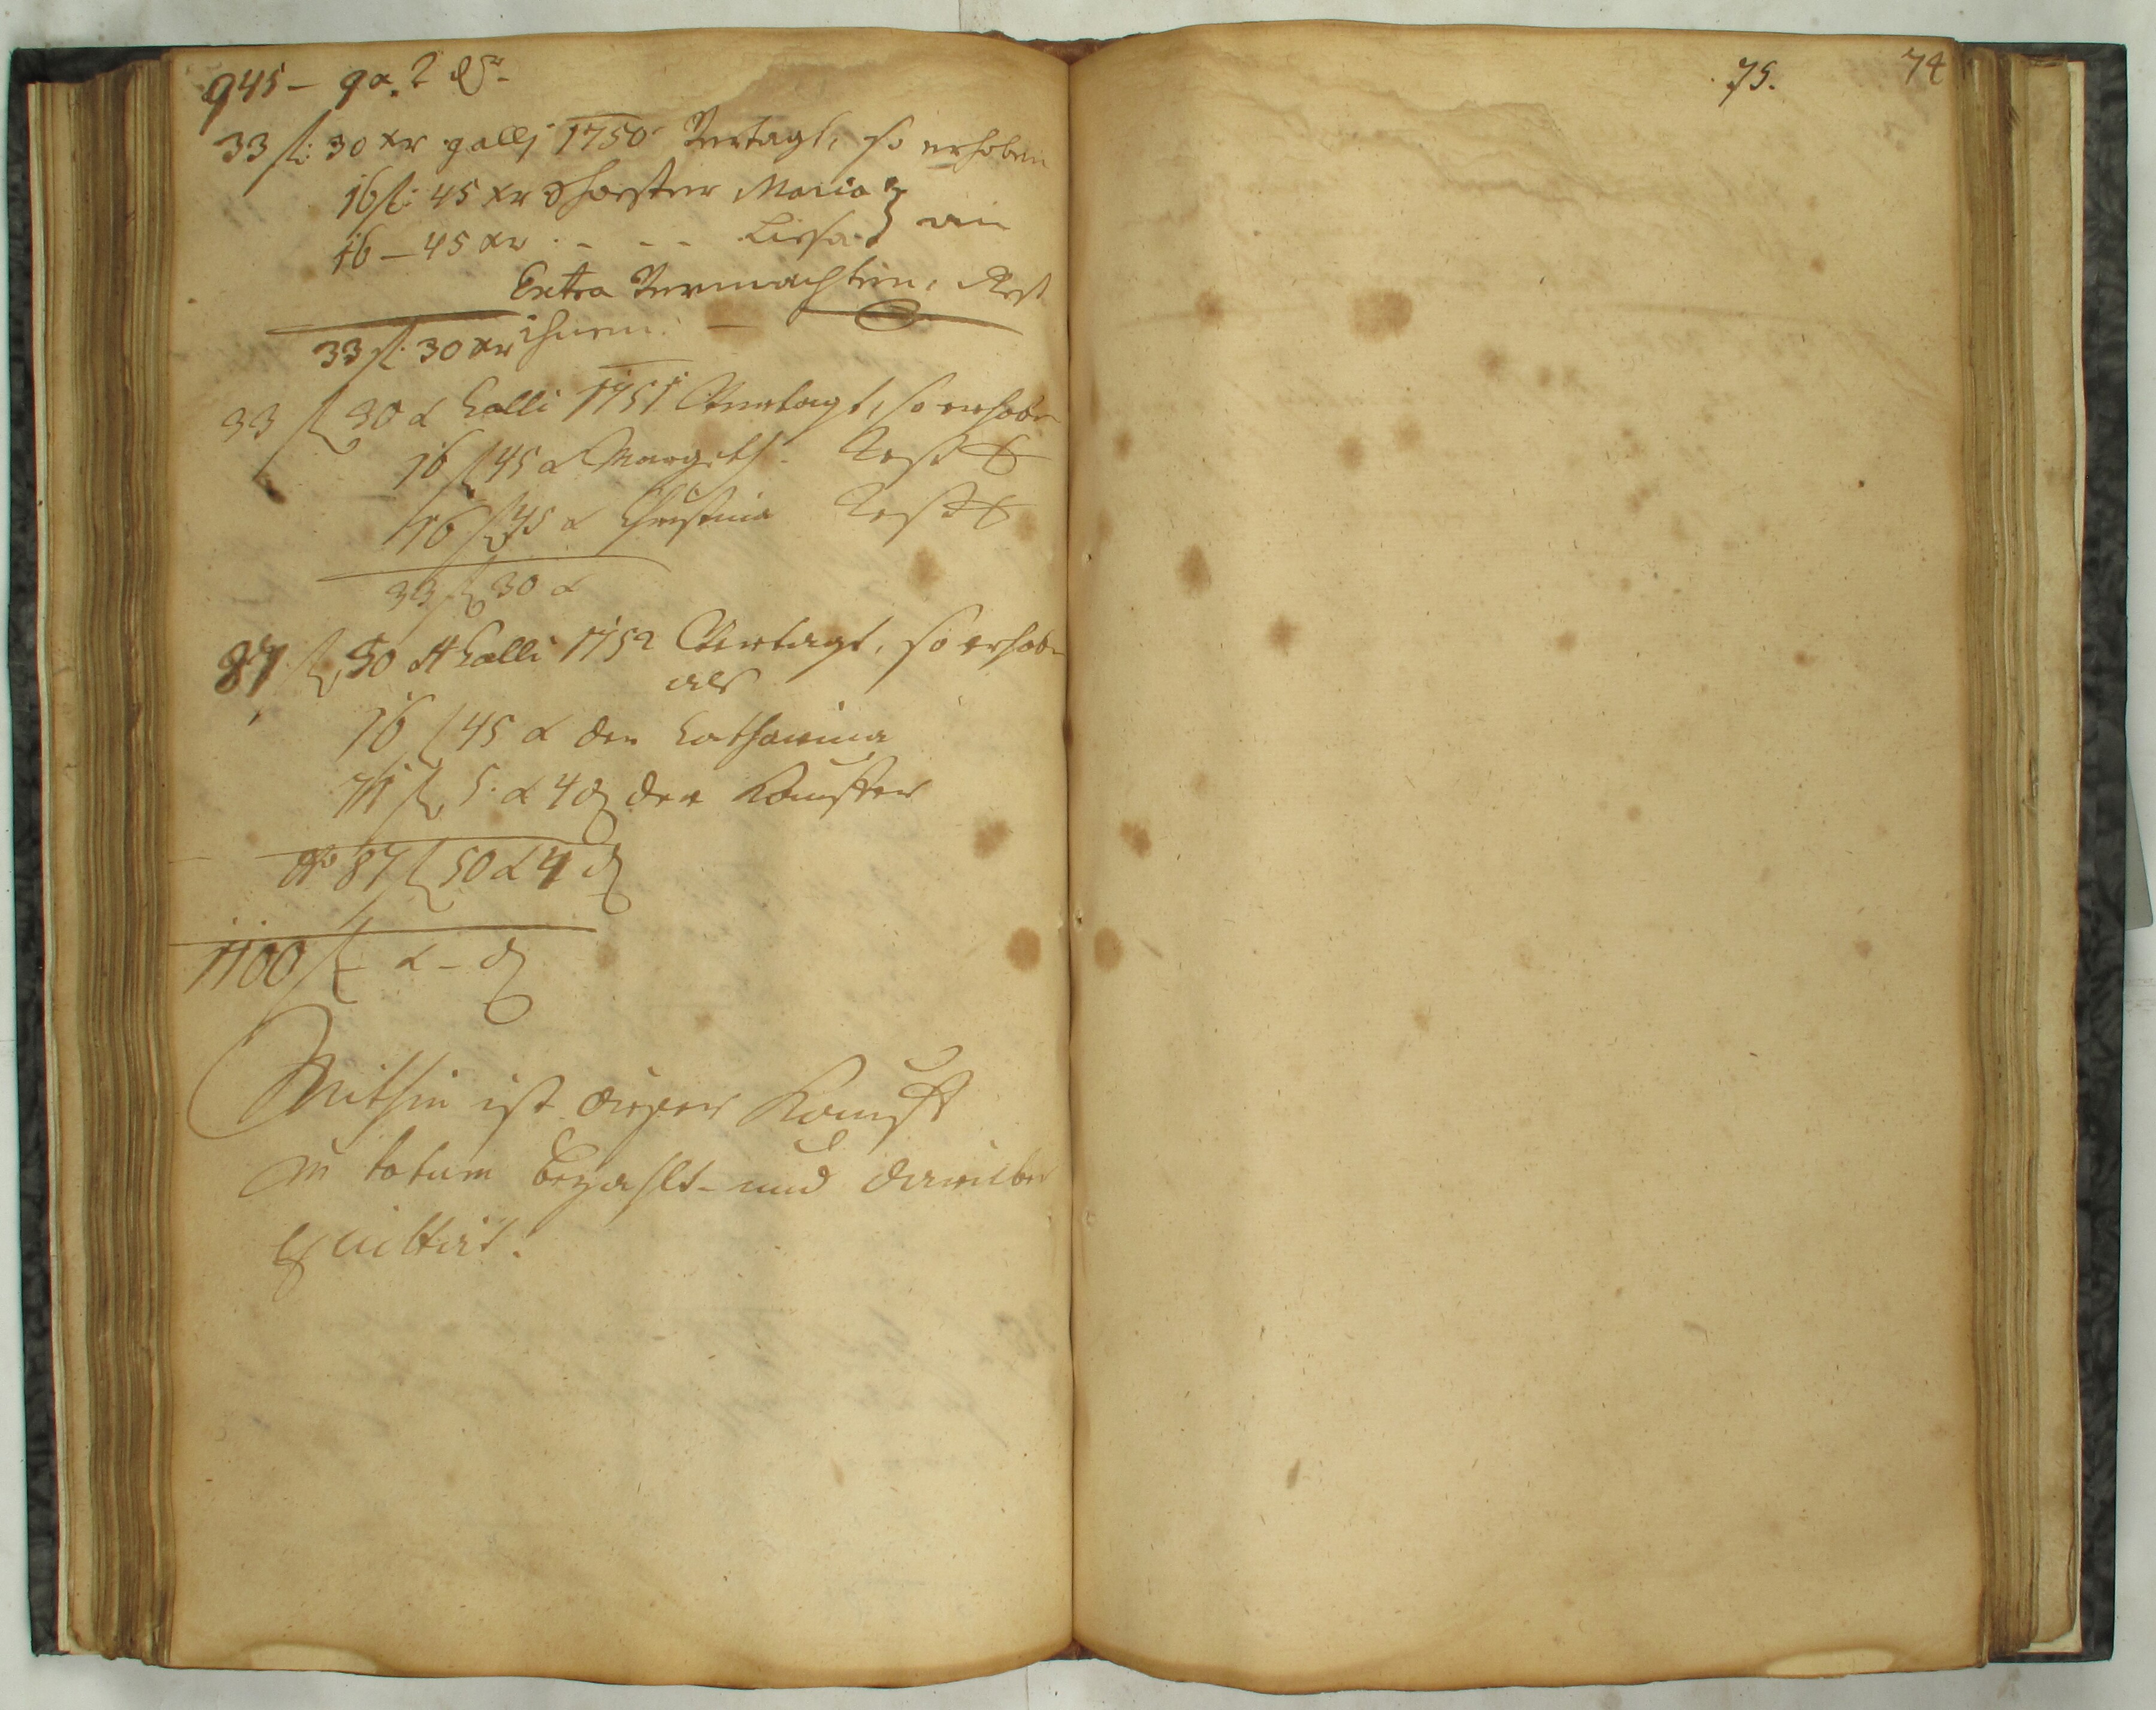 945 – 9 x. 2 ₰
33 fl: 30 xr galli 1750 Vertagt, so erhoben
16 fl: 45 xr Maria } an
16 – 45 xr . - - - Liesa }
Extra Vermachten, Rest
ihnen. —
33 fl: 30 xr
33 fl 30 x Galli 1751 Vertagt, so erhoben
16 fl 45 x Margeth. Rest
16 fl 45 x Christina Rest
33 fl 30 x
87 fl 50 x Galli 1752 Vertagt, so erhoben
als
16 fl 45 x der Catharina
71 fl 5 x 4 ₰ der
87 fl 50 x 4 ₰
1100 fl – x – ₰
Mithin ist dieser Kauff
in totum bezahlt- und darüber
quittirt.
75.
74